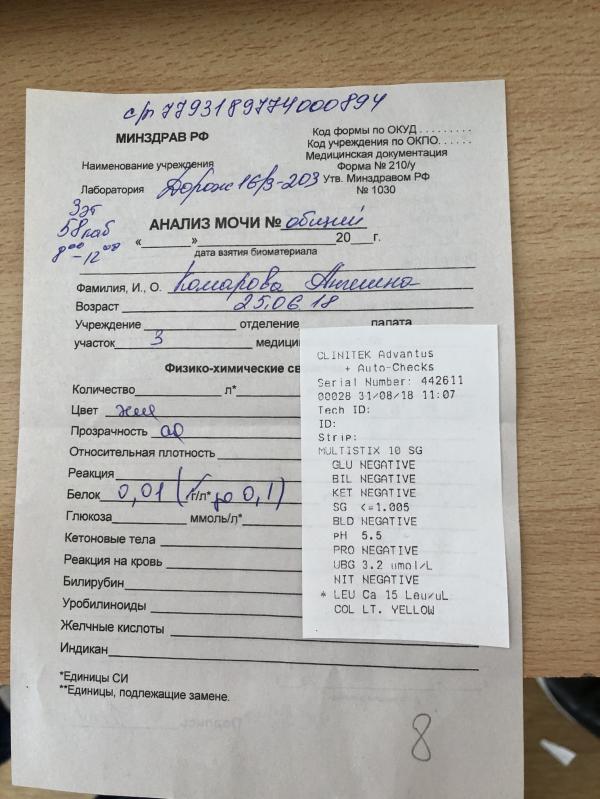 с/п 7793189774000894
МИНЗДРАВ РФ
Код формы по ОКУД . . . . . . . . .
Код учреждения по ОКПО. . . . . .
Медицинская документация
Форма № 210/у
Утв. Минздравом РФ
№ 1030
Наименование учреждения
Лаборатория Дорож 16/3-203
3 эт
58 каб
8⁰⁰ - 12⁰⁰
АНАЛИЗ МОЧИ № общий
«______»____________________20___г.
дата взятия биоматериала
Фамилия, И., О. Комарова Ангелина
Возраст 25.06.18
Учреждение отделение палата
участок 3 медици
Физико-химические св
Количество л*
Цвет жел
Прозрачность
Относительная плотность
Реакция
Белок 0,01 (г/л* до 0,1)
Глюкоза ммоль/л*
Кетоновые тела
Реакция на кровь
Билирубин
Уробилиноиды
Желчные кислоты
Индикан
*Единицы СИ
**Единицы, подлежащие замене.
8
CLINITEK Advantus
+ Auto-Checks
Serial Number: 442611
00028 31/08/18 11:07
Tech ID:
ID:
Strip:
MULTISTIX 10 SG
GLU NEGATIVE
BIL NEGATIVE
KET NEGATIVE
SG <=1.005
BLD NEGATIVE
pH 5.5
PRO NEGATIVE
UBG 3.2 umol/L
NIT NEGATIVE
* LEU Ca 15 Leu/uL
COL LT. YELLOW